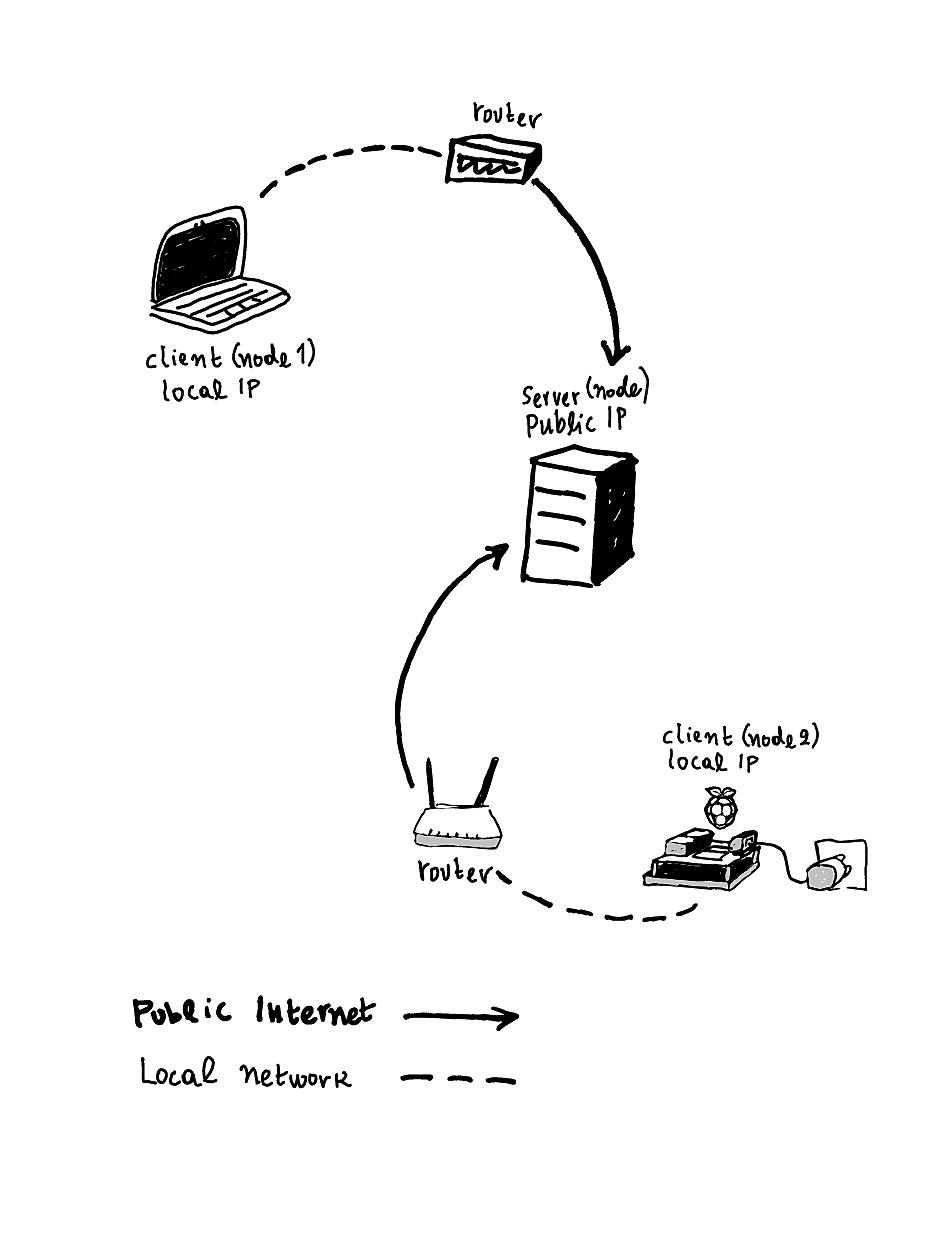 router
client (node 1)
local IP
Server (node)
Public IP
client (node 2)
local IP
router
Public Internet
Local network